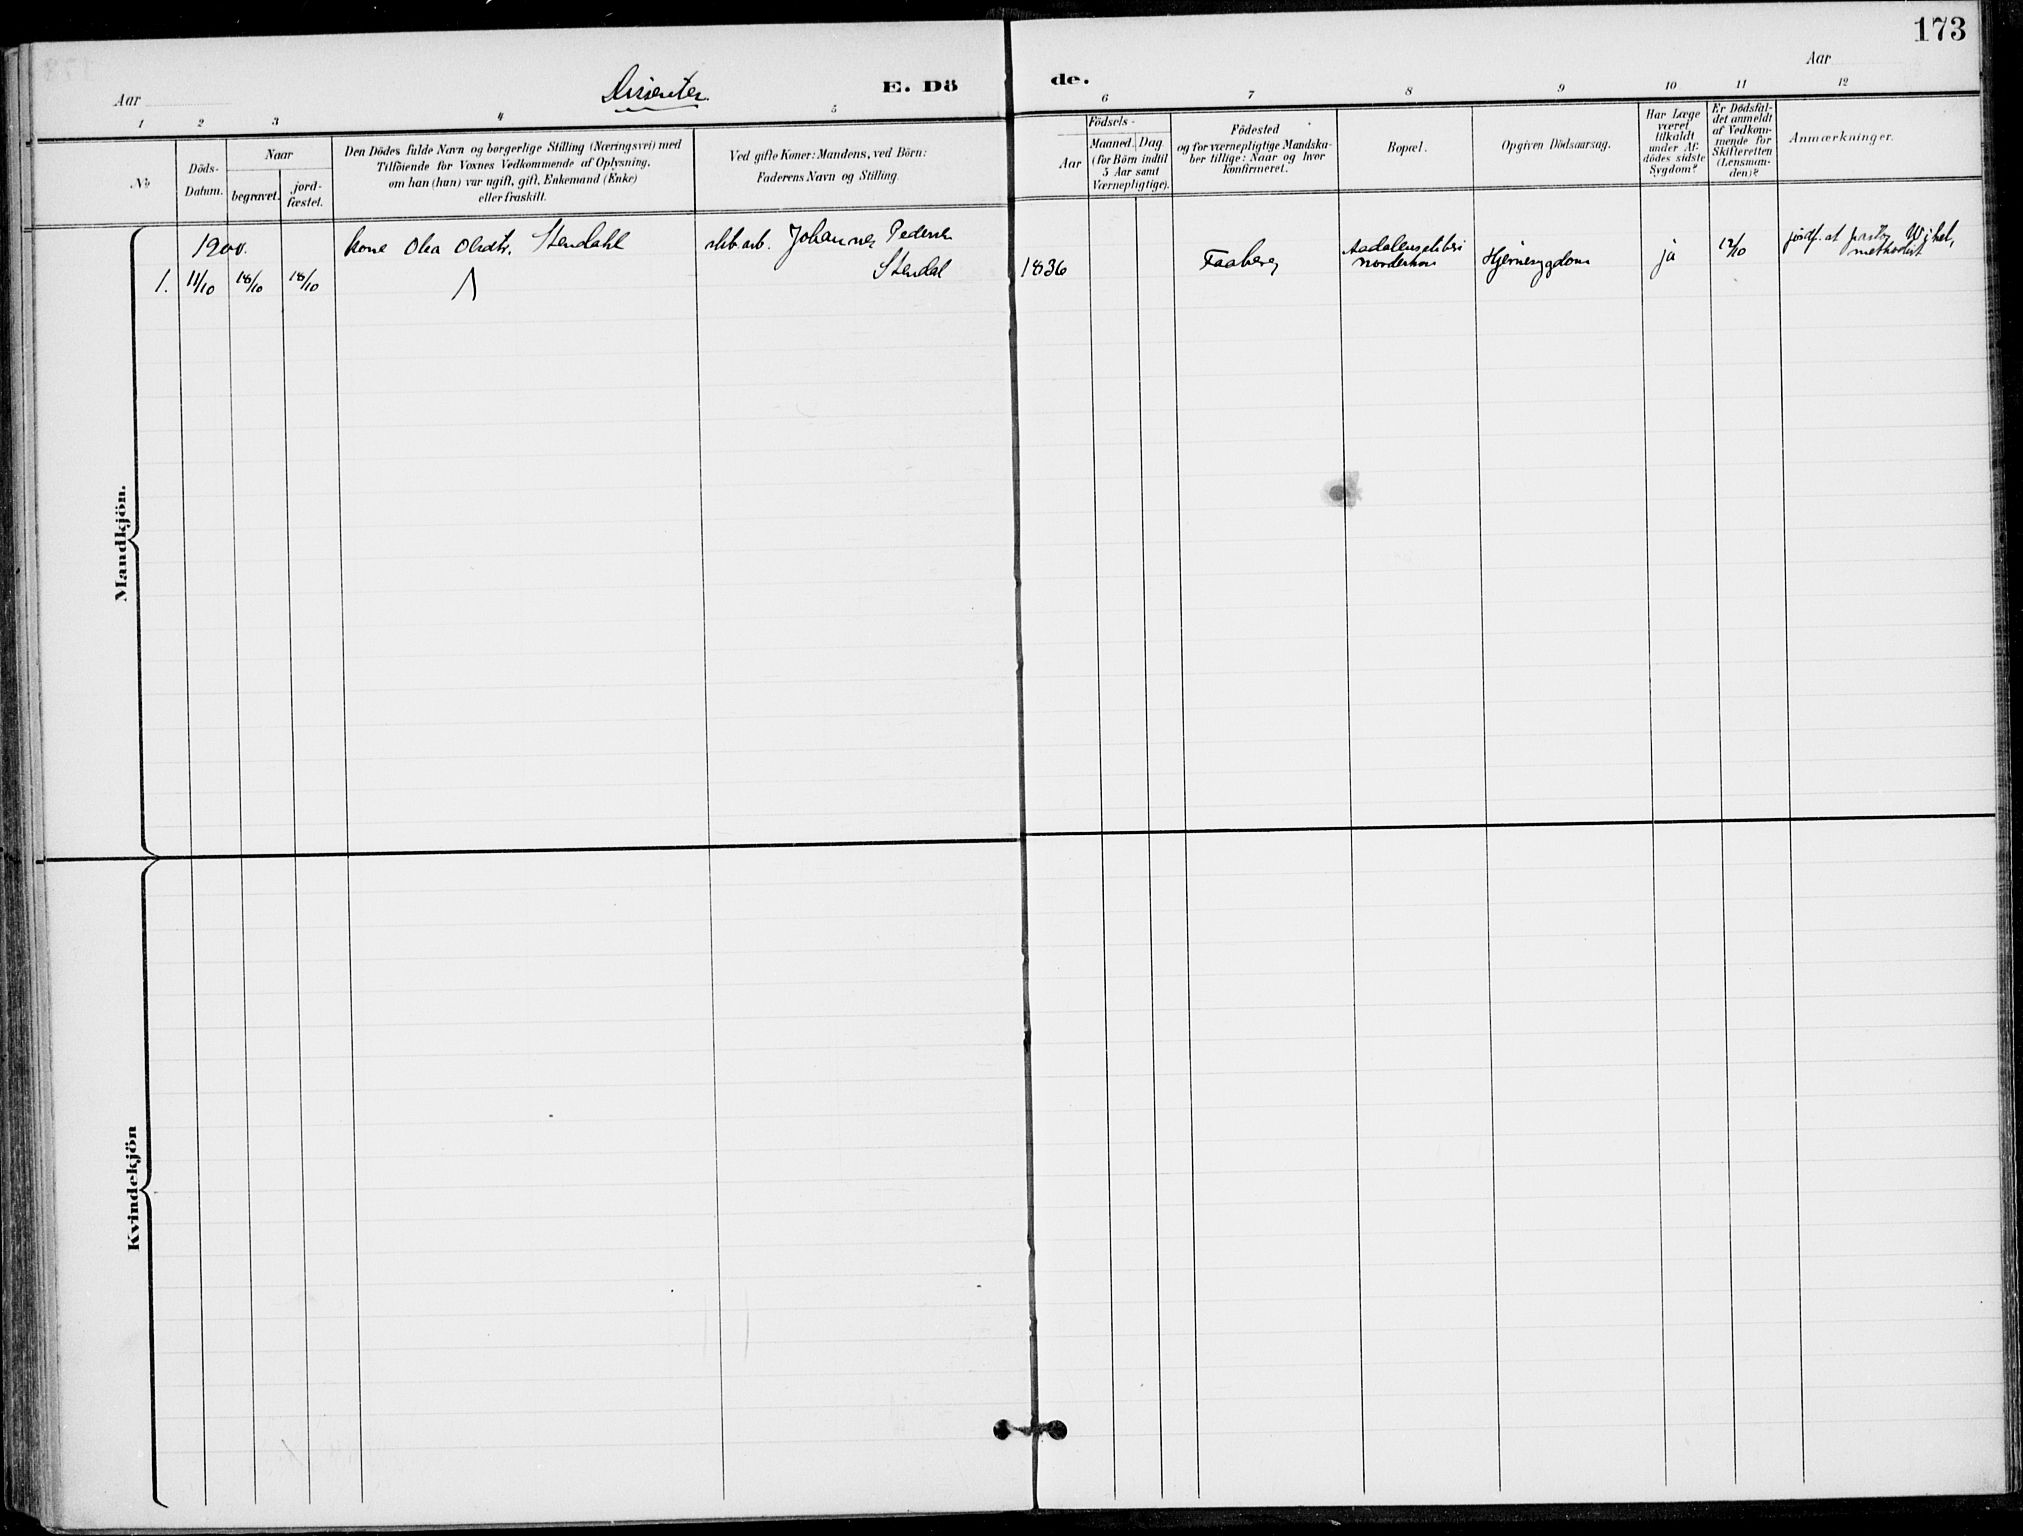 173
Dissenter
E. Dö
de.
Aar
Aar
1 2 3 4 5
6 7 8 9 10 11 12
No
Döds-
Datum.
Naar
begravet.
jord-
fæstet.
Den Dödes fulde Navn og borgerlige Stilling (Næringsvei) med
Tilföiende for Voxnes Vedkommende af Oplysning,
om han (hun) var ugift, gift, Enkemand (Enke)
eller fraskilt.
Ved gifte Koner: Mandens, ved Börn:
Faderens Navn og Stilling.
Födsels-
Aar
Maaned.
Dag
(for Börn indtil
5 Aar samt
Værnepligtige).
Födested
og for værnepligtige Mandska-
ber tillige: Naar og hvor
konfirmeret.
Bopæl.
Opgiven Dödsaarsag.
Har Læge
været
tilkaldt
under Af-
dödes sidste
Sygdom?
Er Dödsfal-
det anmeldt
af Vedkom-
mende for
Skifteretten
(Lensman-
den)?
Anmærkninger.
1900.
kone Olea Olsdtr. Stendahl
Johannes Pedersen
Stendal
1. 11/10 18/10 18/10
1836
Faaberg
Norderhov
Hjernesygdom
ja
12/10
jordf. af pastor
methodist
Mandkjön.
Kvindekjön